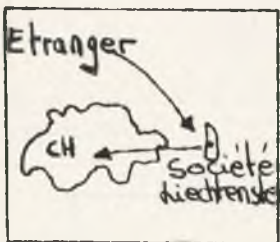 Etranger
CH
Société
Liechtenste